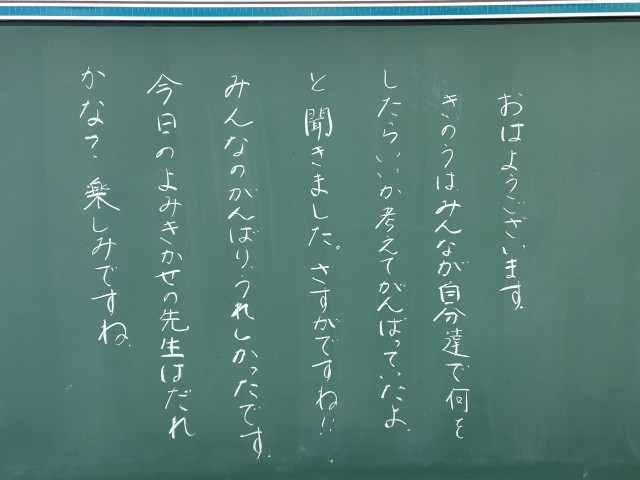 おはようございます。
きのうは、みんなが自分達で何を
したらいいか考えてがんばっていたよ。
と聞きました。さすがですね!!
みんなのがんばり、うれしかったです。
今日のよみきかせの先生はだれ
かな?楽しみですね。